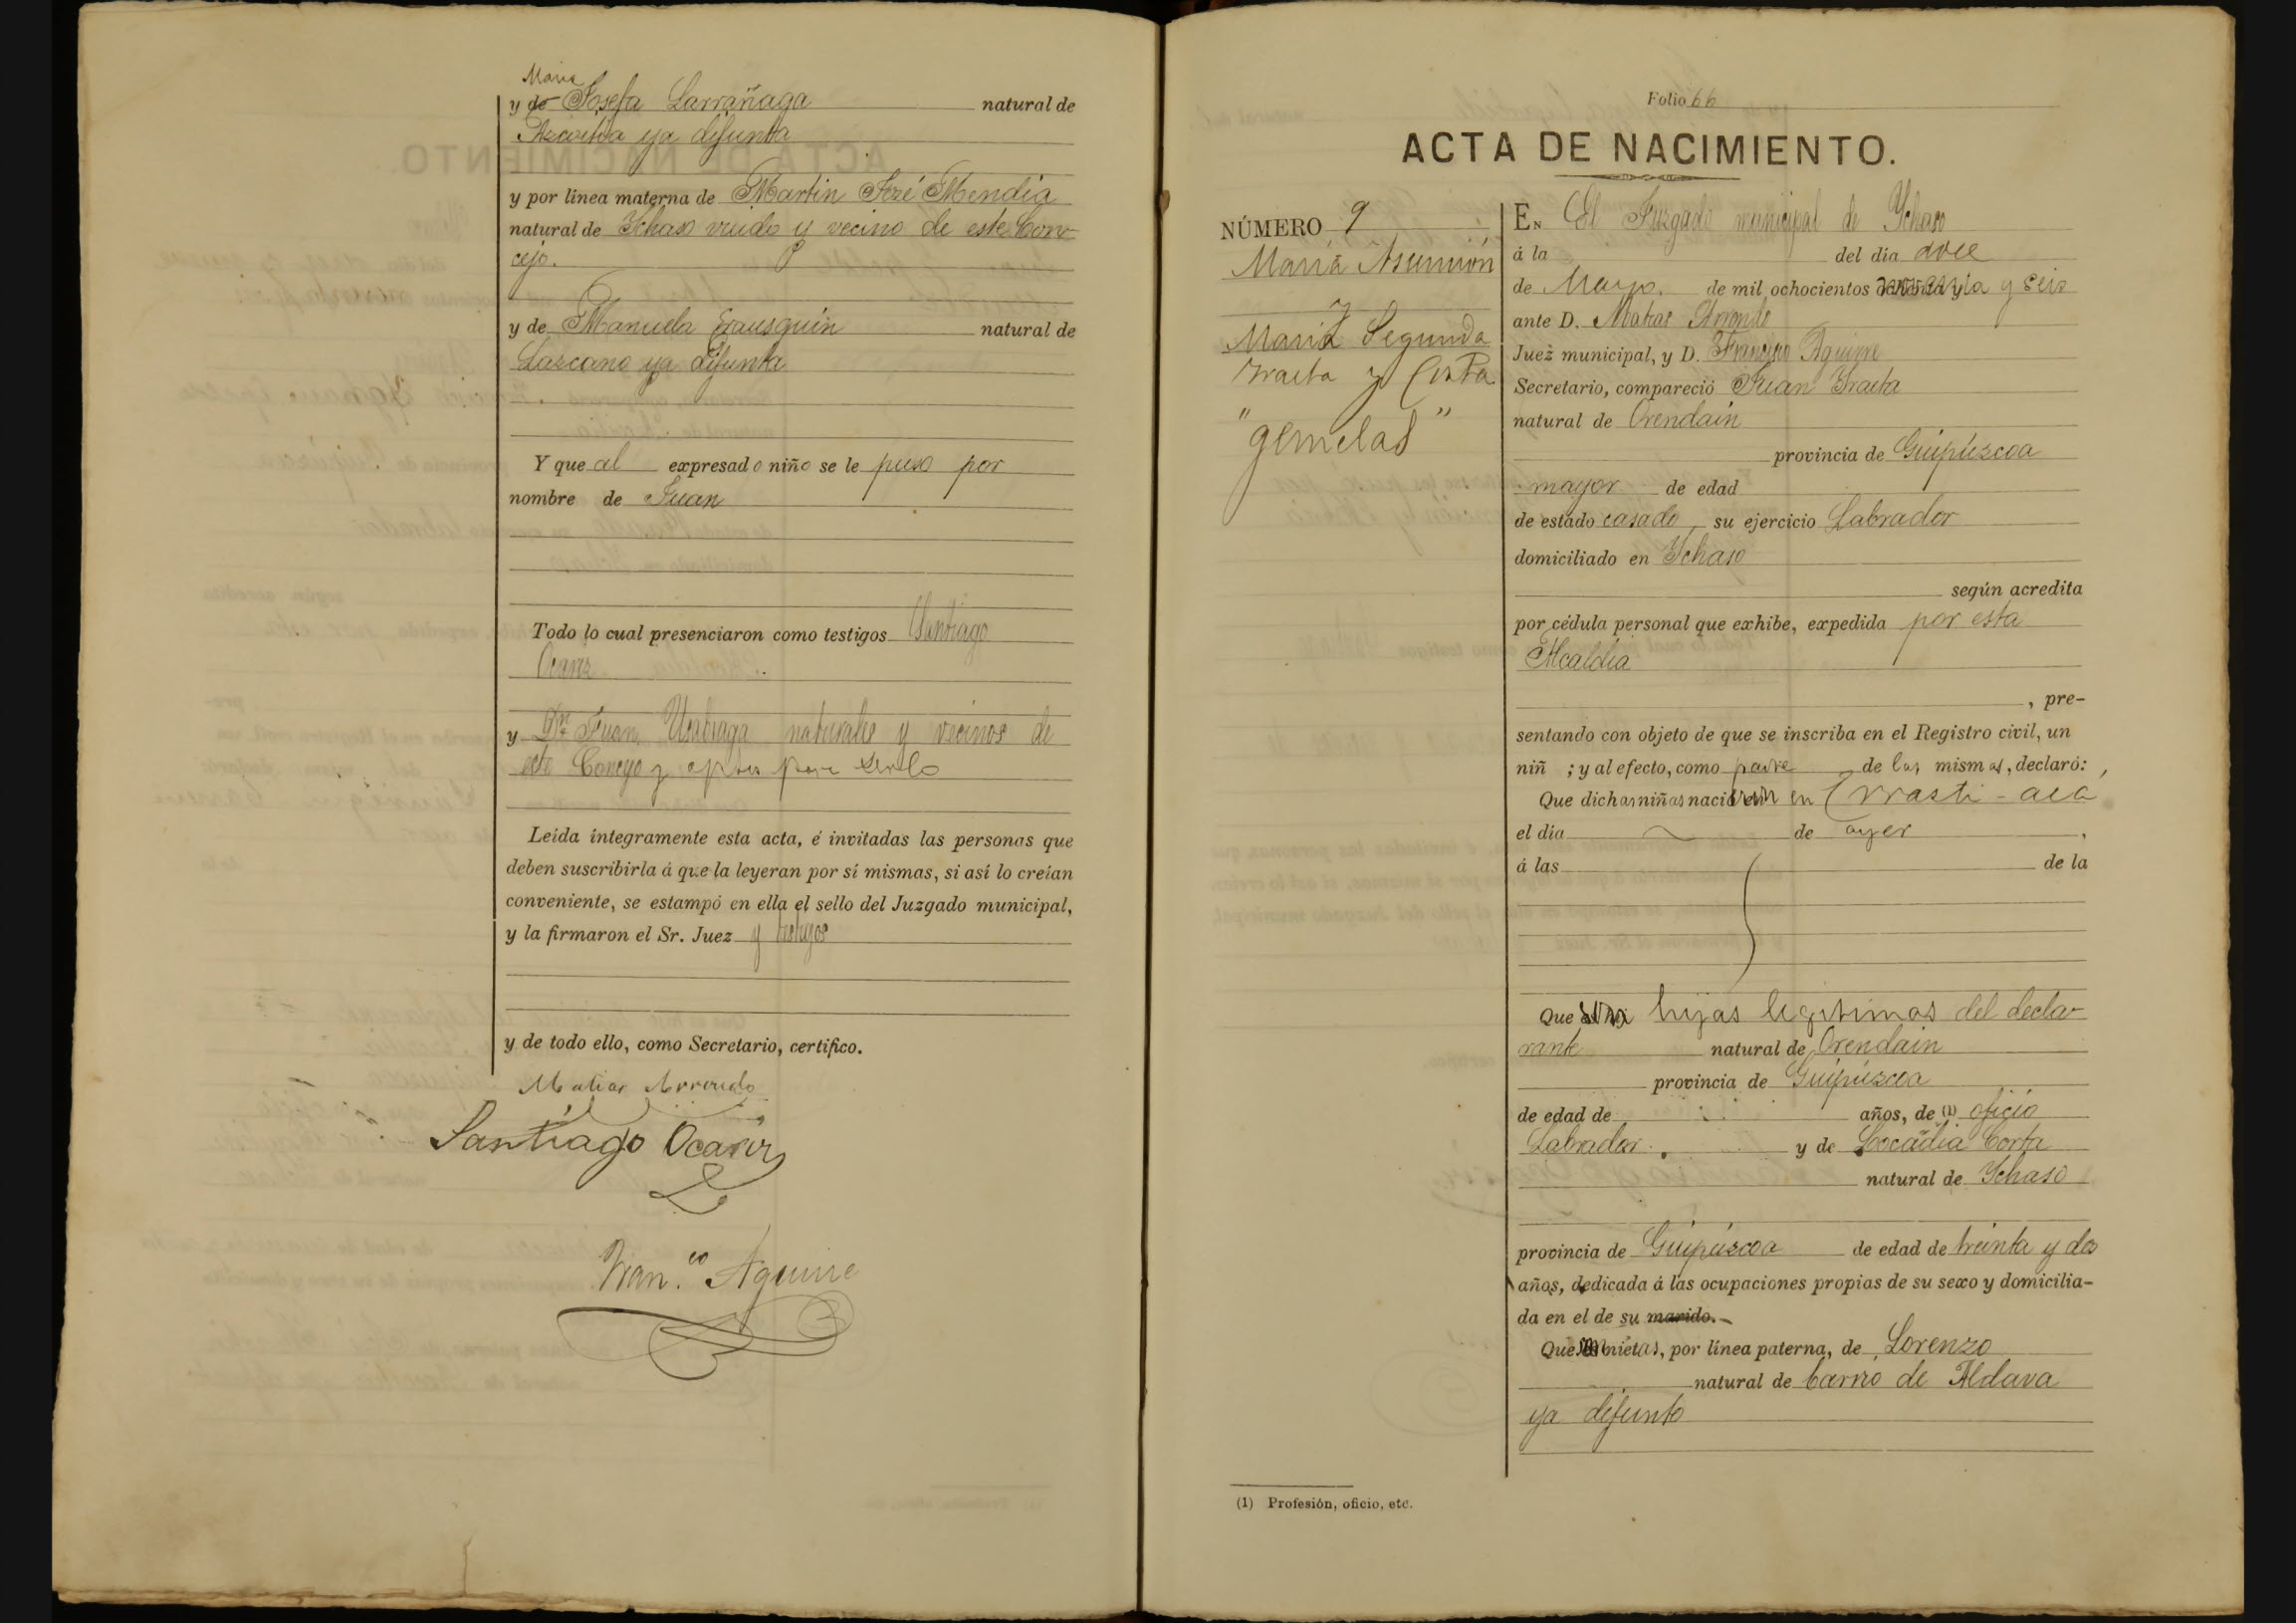 Maria
y de Josefa Larrañaga natural de
Azcoitia ya difunta
y por línea materna de Martin José Mendia
natural de Ychaso viudo y vecino de este Con-
cejo.
y de Manuela Erausquin natural de
Lazcano ya difunta
Y que al expresado niño se le puso por
nombre de Juan
Todo lo cual presenciaron como testigos Santiago
Ocariz
y Dn Juan Urabiaga naturales y vecinos de
este Concejo y aptos para serlo
Leída íntegramente esta acta, é invitadas las personas que
deben suscribirla á que la leyeran por sí mismas, si así lo creían
conveniente, se estampó en ella el sello del Juzgado municipal,
y la firmaron el Sr. Juez y testigos
y de todo ello, como Secretario, certifico.
Matias Arrondo
Santiago Ocariz
Fran.co Aguirre
Folio 66
ACTA DE NACIMIENTO.
NÚMERO 9
Maria Asunción
y
Maria Segunda
Yraeta y Corta
"gemelas"
EN El Juzgado municipal de Ychaso
á la del día doce
de Mayo. de mil ochocientos noventa y seis
ante D. Matias Arrondo
Juez municipal, y D. Francisco Aguirre
Secretario, compareció Juan Yraeta
natural de Orendain
provincia de Guipúzcoa
mayor de edad
de estado casado, su ejercicio Labrador
domiciliado en Ychaso
según acredita
por cédula personal que exhibe, expedida por esta
Alcaldia
, pre-
sentando con objeto de que se inscriba en el Registro civil, un
niñ ; y al efecto, como padre de las mismas, declaró:
Que dichas niñas nacieron en
el día de ayer
á las de la
Que son hijas legitimas del decla-
rante natural de Orendain
provincia de Guipúzcoa
de edad de años, de (1) oficio
Labrador. y de Leocadia Corta
natural de Ychaso
provincia de Guipúzcoa de edad de treinta y dos
años, dedicada á las ocupaciones propias de su sexo y domicilia-
da en el de su marido.
Que son nietas, por línea paterna, de Lorenzo
natural de barrio de Aldava
ya difunto
(1) Profesión, oficio, etc.